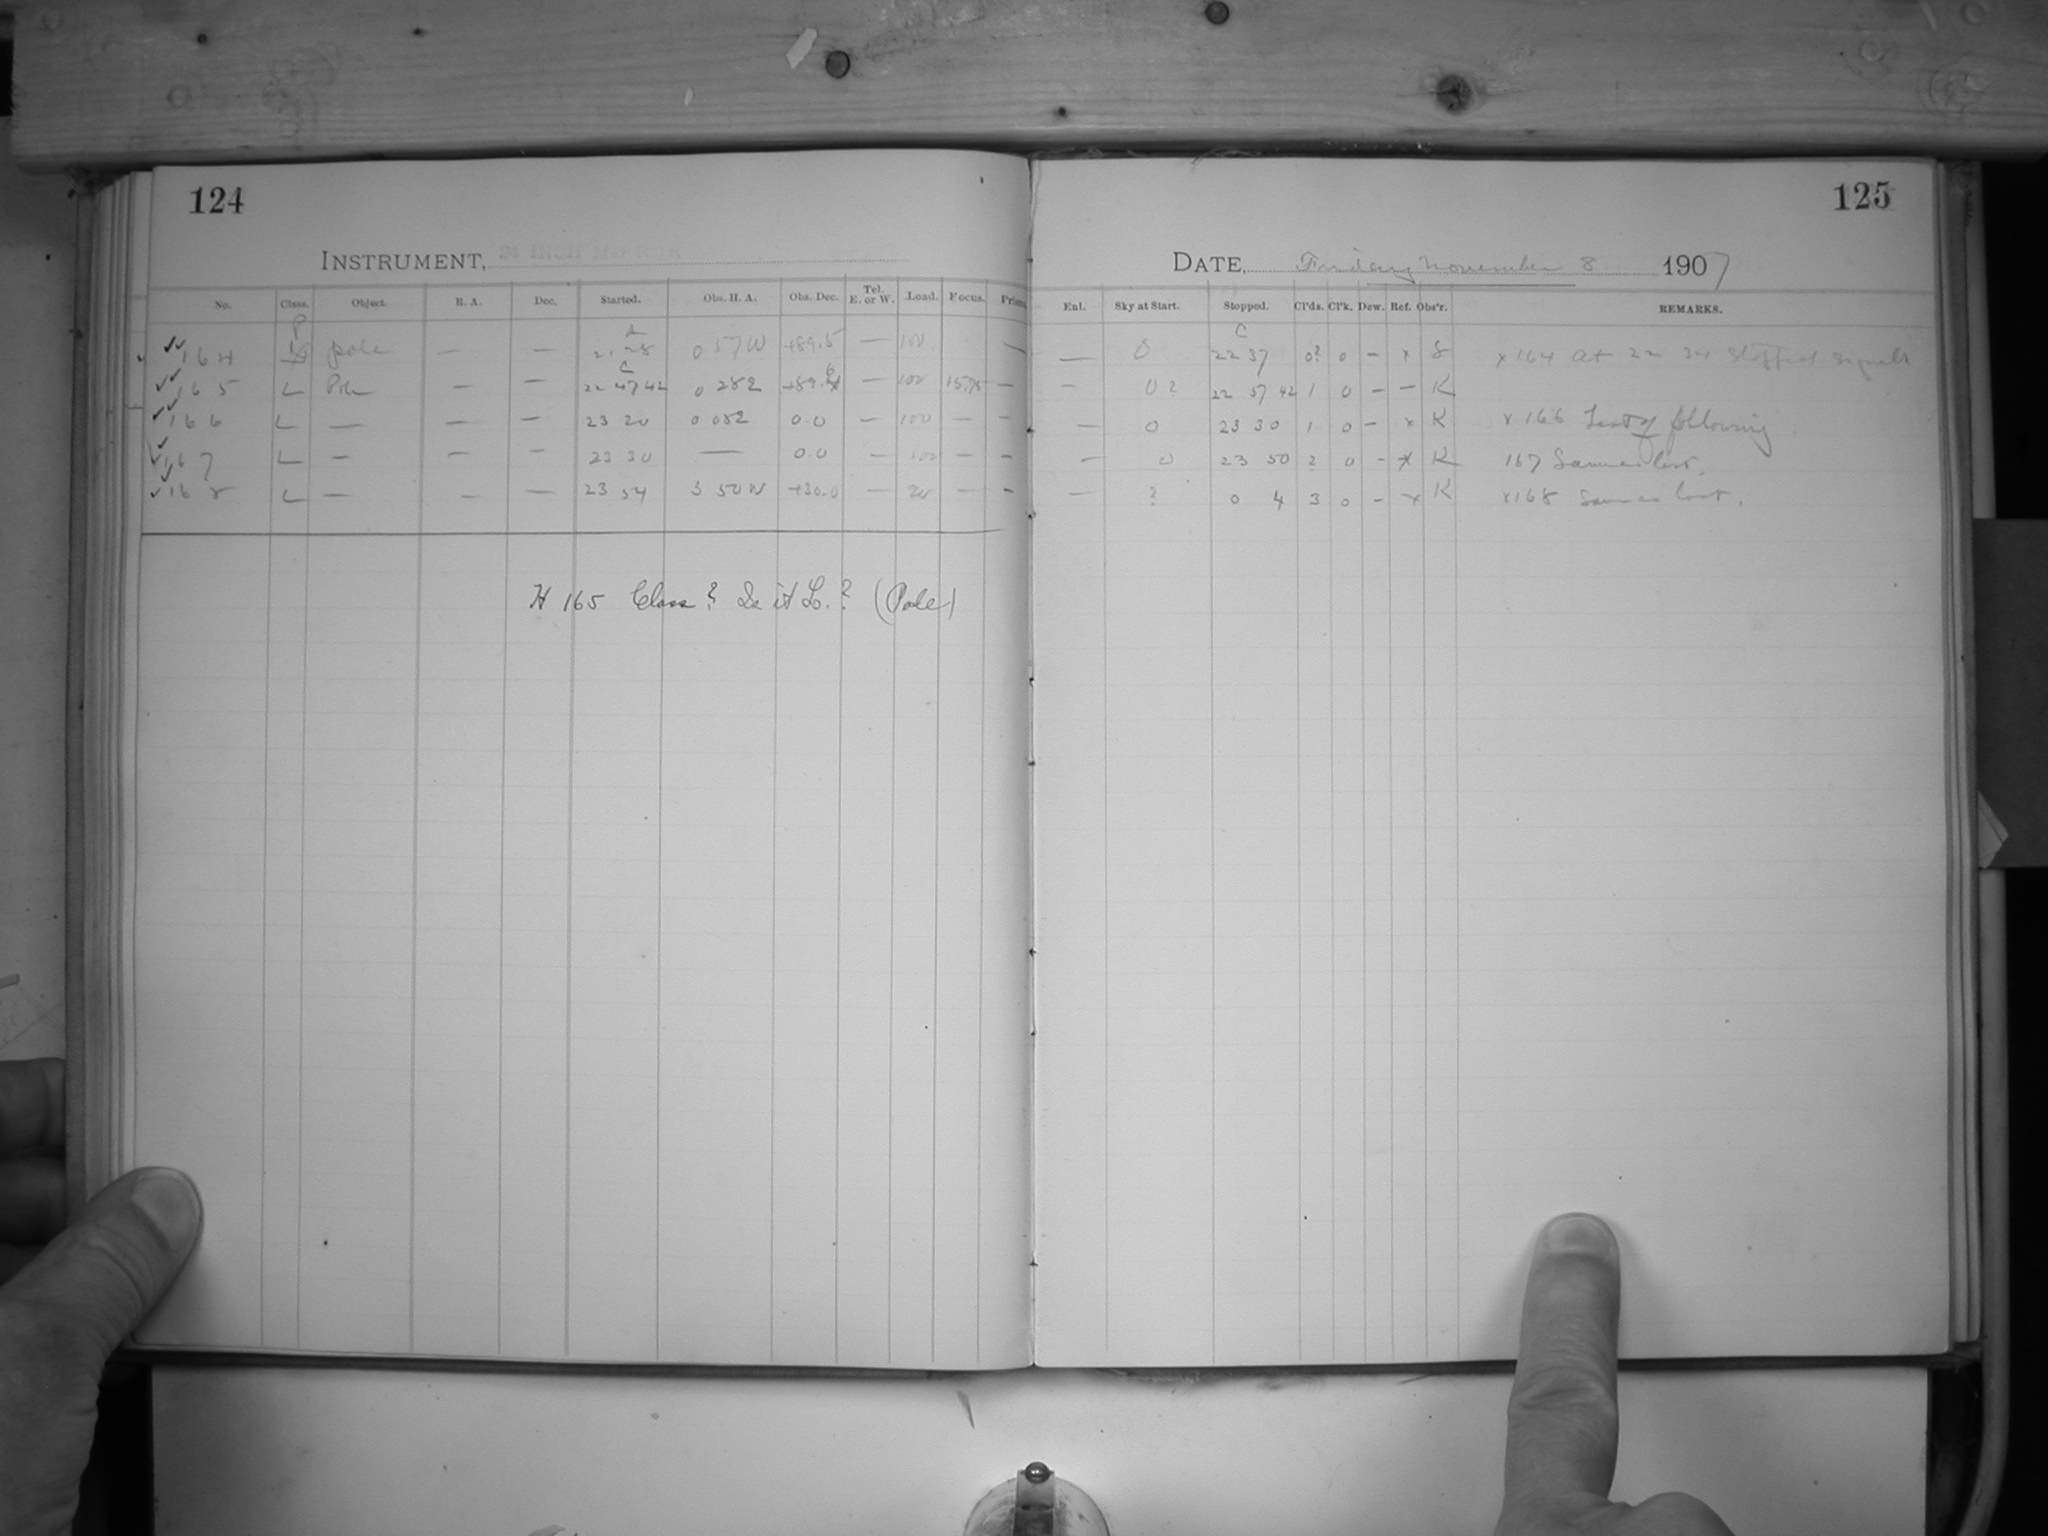 124
INSTRUMENT, 24 INCH MIRROR
No. Class. Object. R. A. Dec. Started. Obs. H. A. Obs. Dec. Tel. E. or W. Load. Focus. Prism
164 P pole — — 21 28 0 57 W +89.5 — 100 —
165 L Pole — — C 22 47 42 0 282 — 100 —
166 L — — — 23 20 0 082 0.0 — 100 — —
167 L — — — 23 30 — 0.0 — 100 — —
168 L — — — 23 54 3 50 W +30.0 — 20 — —
H 165 Class? Is it L.? (Pole)
125
DATE, Friday November 8 1907
Enl. Sky at Start. Stopped. Cl'ds. Cl'k. Dew. Ref. Obs'r. REMARKS.
— 0 C 22 37 0? 0 – x S x 164 at 22 34 stopped signals
— 0? 22 57 42 1 0 – – K
— 0 23 30 1 0 – x K x 166 Test of following
— 0 23 50 2 0 – x K 167 Same as last.
— ? 0 4 3 0 – x K x 168 Same as last.